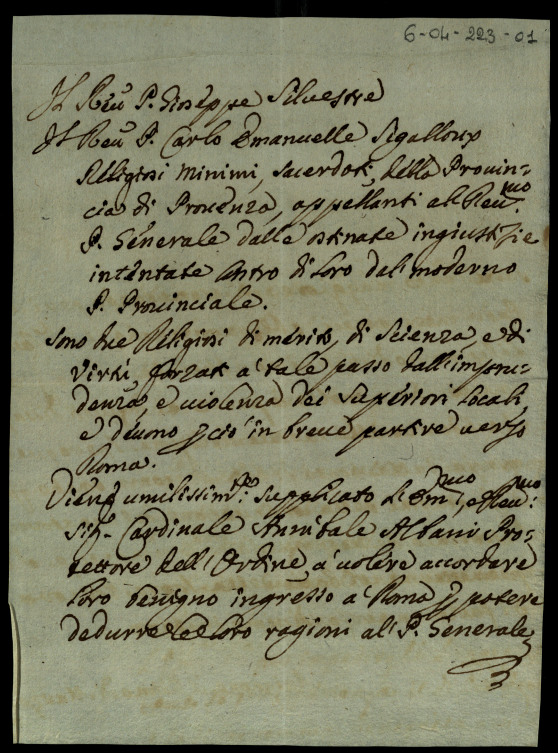 6-04-223-01
Il Reu P. Gioseppe Silvestre
Il Reu P. Carlo Emanuelle Sigalloux
Religiosi Minimi, sacerdoti, della Prouin=
cia di Prouenza, appellanti al Reu.mo
P. Generale dalle ostinate ingiustizie
intentate contro di loro dal moderno
P. Prouinciale.
Sono due Religiosi di merito, di scienza, e di
virtù, forzati a' tale passo dall'impru=
denza, e uiolenza dei Superiori locali,
e deuono p ciò in breue partire uerso
Roma.
Viene umilissim.te supplicato l'Em.mo, e Reu.mo
Sig. Cardinale Annibale Albani Pro=
tettore dell'Ordine, a' uolere accordare
loro benigno ingresso a' Roma p potere
dedurre le loro ragioni al P. Generale